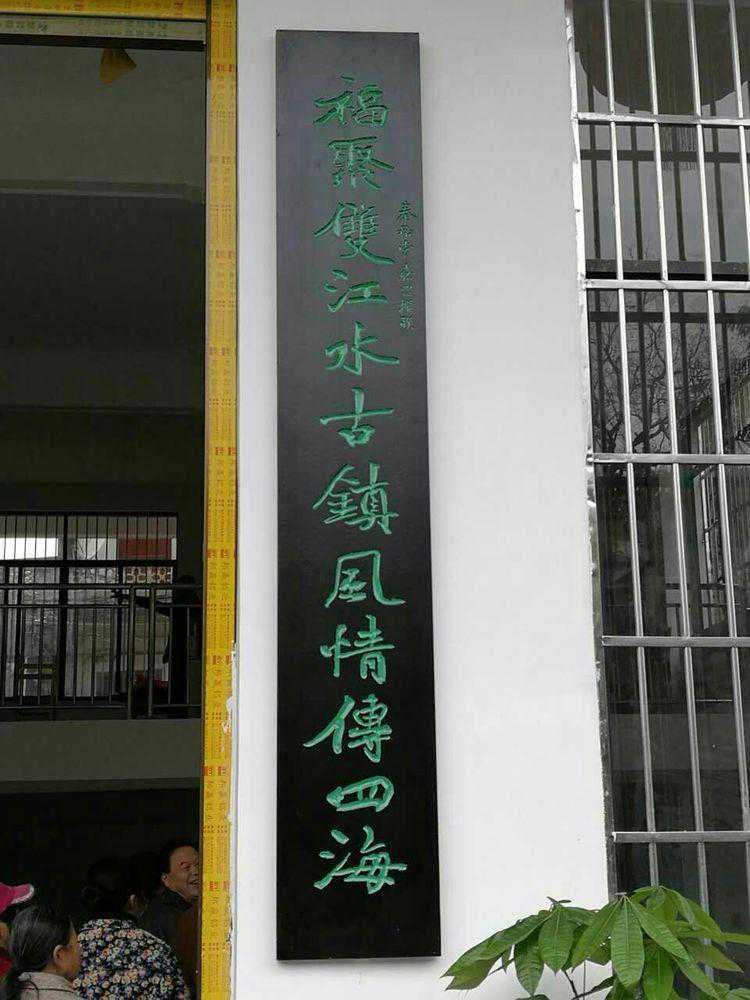 福聚雙江水古鎮風情傳四海